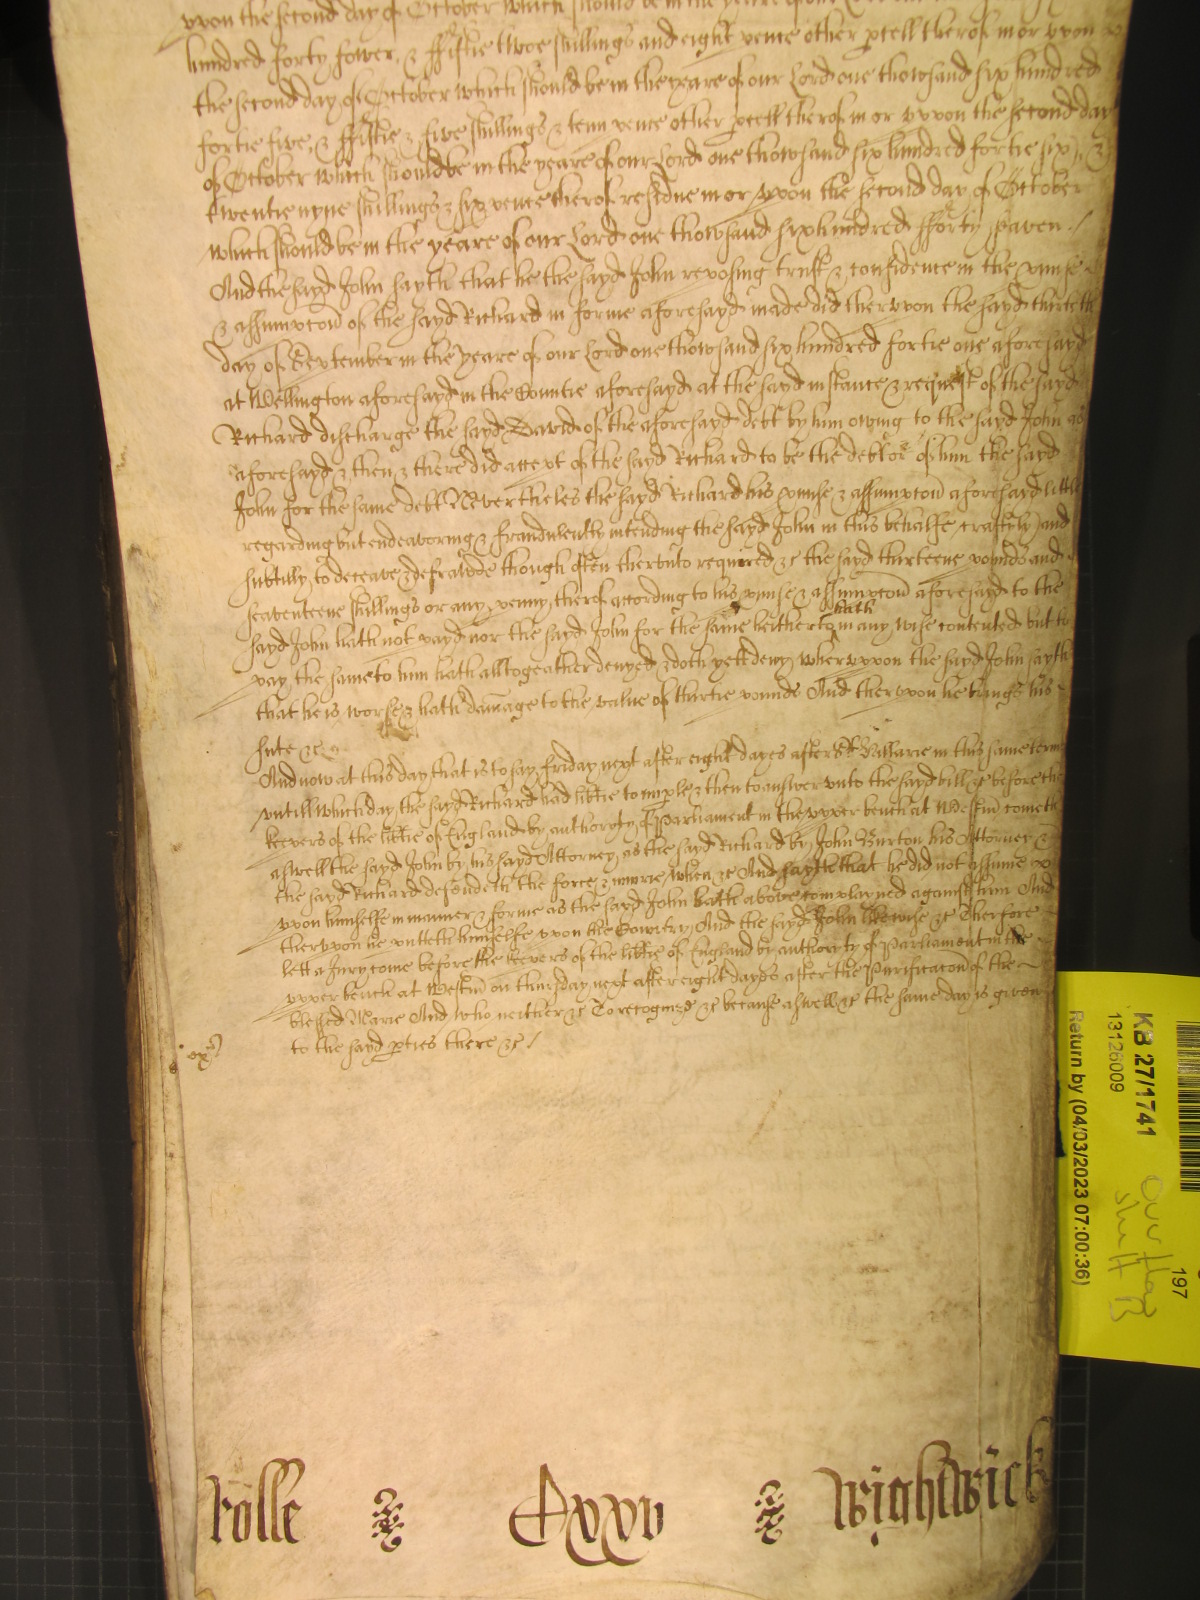 vpon the second day of October which should be in the yeare of our Lord
hundred forty fower, & ffiftie twoe shillings and eight pence other pcell therof in or vpon
the second day of October which should be in the yeare of our Lord one thowsand six hundred
fortie five, & ffiftie & five shillings & tenn pence other pcell therof in or vpon the second day
of October which should be in the yeare of our Lord one thowsand six hundred fortie six, &
twentie nyne shillings & six pence therof residue in or vpon the second day of October
which should be in the yeare of our Lord one thowsand six hundred fforty seaven /
And the sayd John sayth that he the sayd John reposing trust & confidence in the pmise
& assumpcon of the sayd Richard in forme aforesayd made did thervpon the sayd thirteth
day of September in the yeare of our Lord one thowsand six hundred fortie one aforesayd
at Wellington aforesayd in the Countie aforesayd at the sayd instance & request of the sayd
Richard discharge the sayd David of the aforesayd debt by him owing to the sayd John as
aforesayd & then & there did accept of the sayd Richard to be the debtor of him the sayd
John for the same debt Neverthelės the sayd Richard his pmise & assumpcon aforesayd little
regarding but endeavoring & fraudulently intending the sayd John in this behalfe craftily and
subtilly to deceave & defrawde though often thervnto required &c the sayd thirteene pounds and
seaventeene shillings or any penny therof according to his pmise & assumpcon aforesayd to the
sayd John hath not payd nor the sayd John for the same heitherto hath in any wise contented but to
pay the same to him hath alltogeather denyed & doth yett deny whervpon the sayd John sayth
that he is worse & hath damage to the value of thirtie pounds And thervpon he brings his
sute &c
And now at this day that is to say Friday next after eight dayes after St Hillarie in this same terme
vntill which day the sayd Richard had libtie to imple & then to answer vnto the sayd bill &c before the
keepers of the libtie of England by authority of Parliament in the vpper bench at Westm cometh
aswell the sayd John by his sayd Attorney as the sayd Richard by John Burton his Attorney &
the sayd Richard defendeth the force & iniurie when &c And sayth that he did not assume
vpon himselfe in manner & forme as the sayd John hath above complayned against him And
thervpon he putteth himselfe vpon the Cowntry And the sayd John likewise &c Therfore
lett a Jury come before the keepers of the libtie of England by authority of Parliament in the
vpper bench at Westm on thursday next after eight dayes after the Purificacon of the
blessed Marie And who neither &c To recognize &c because aswell &c the same day is given
to the sayd pties there &c /
Rolle
Cxxv
Wightwick
KB 27/1741
13126009
Return by (04/03/2023 07:00:36)
197